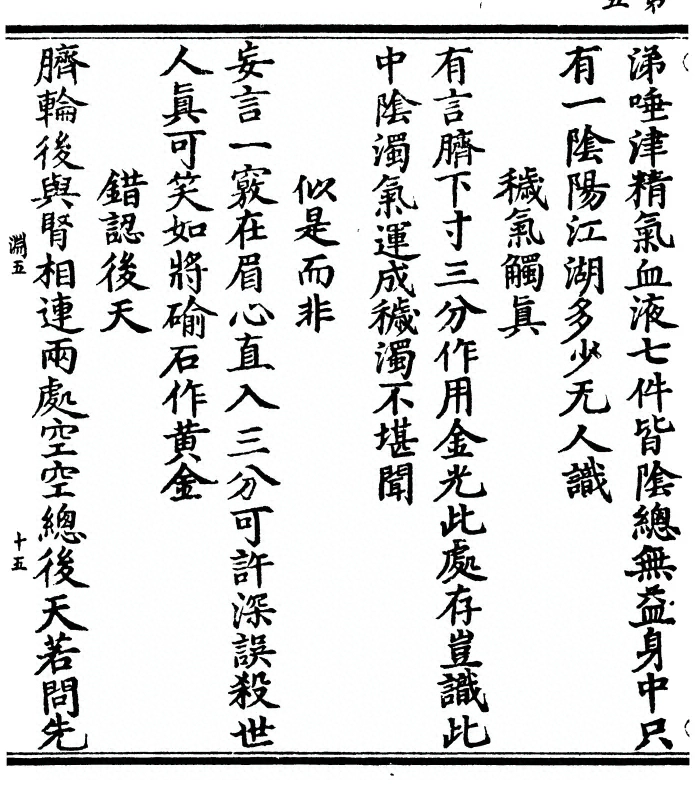 第五
涕唾津精氣血液七件皆陰總無益身中只
有一陰陽江湖多少无人識
穢氣觸眞
有言臍下寸三分作用金光此處存豈識此
中陰濁氣運成穢濁不堪聞
似是而非
妄言一竅在眉心直入三分可許深誤殺世
人眞可笑如將碖石作黄金
錯認後天
臍輪後與腎相連兩處空空總後天若問先
淵五
十五